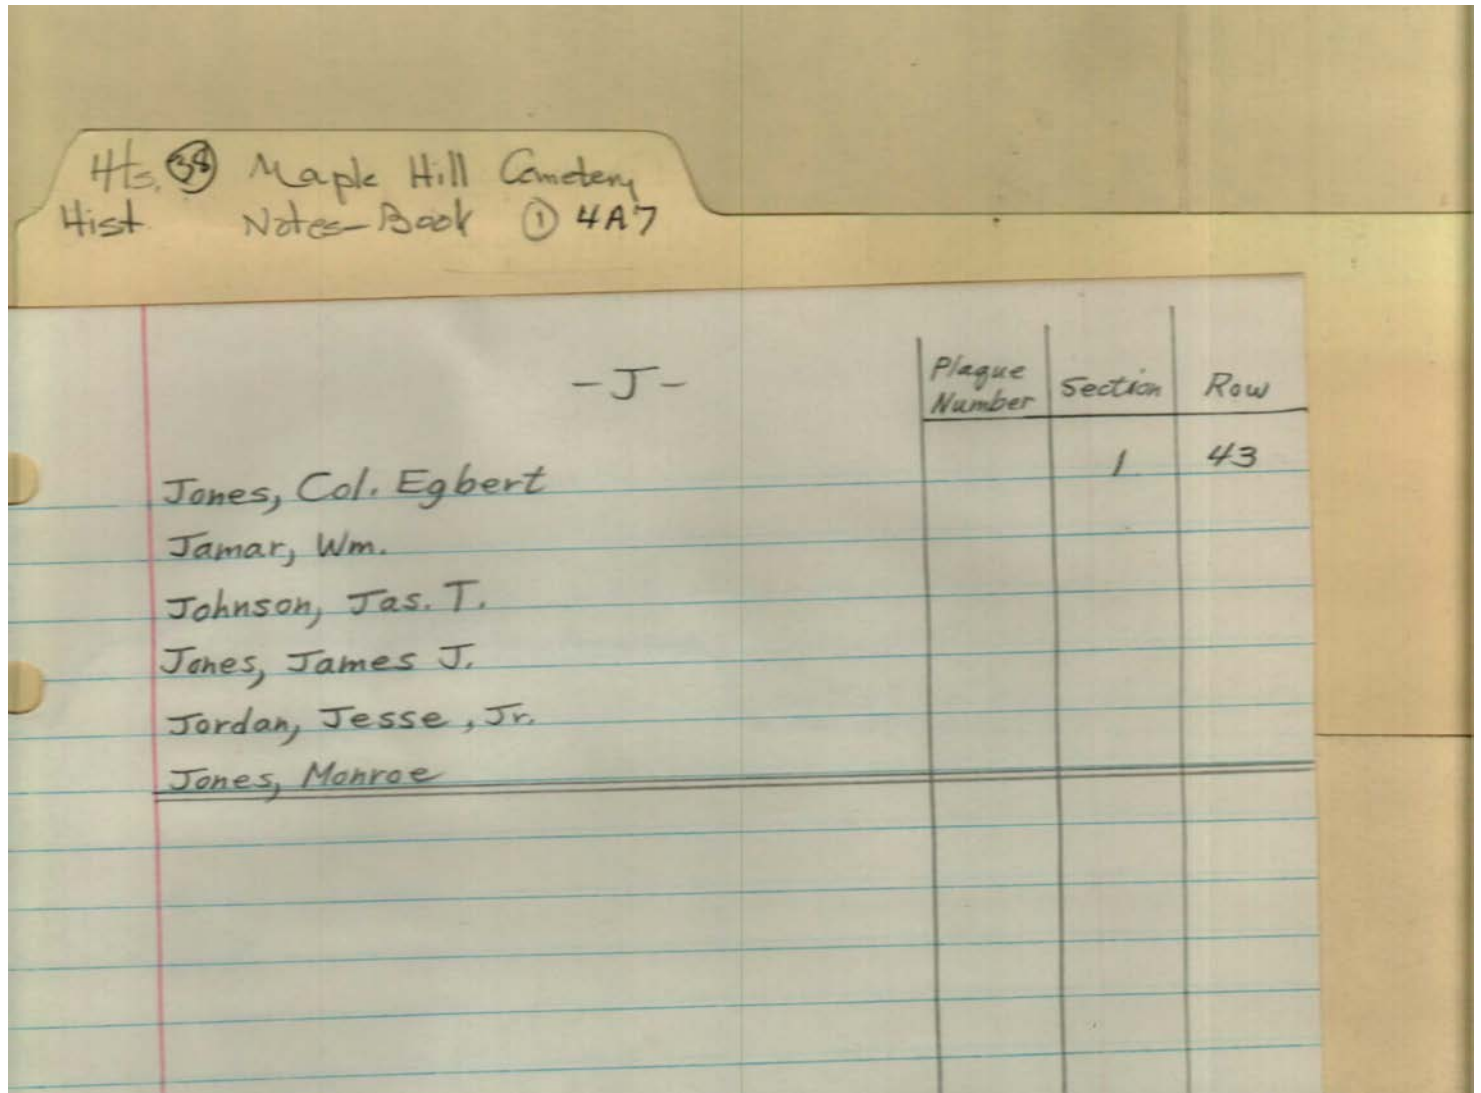 Hts. 38 Maple Hill Cemetery
Hist Notes-Book 1 4A7
-J-
Plaque Number Section Row
Jones, Col. Egbert 1 43
Jamar, Wm.
Johnson, Jas. T.
Jones, James J.
Jordan, Jesse, Jr.
Jones, Monroe